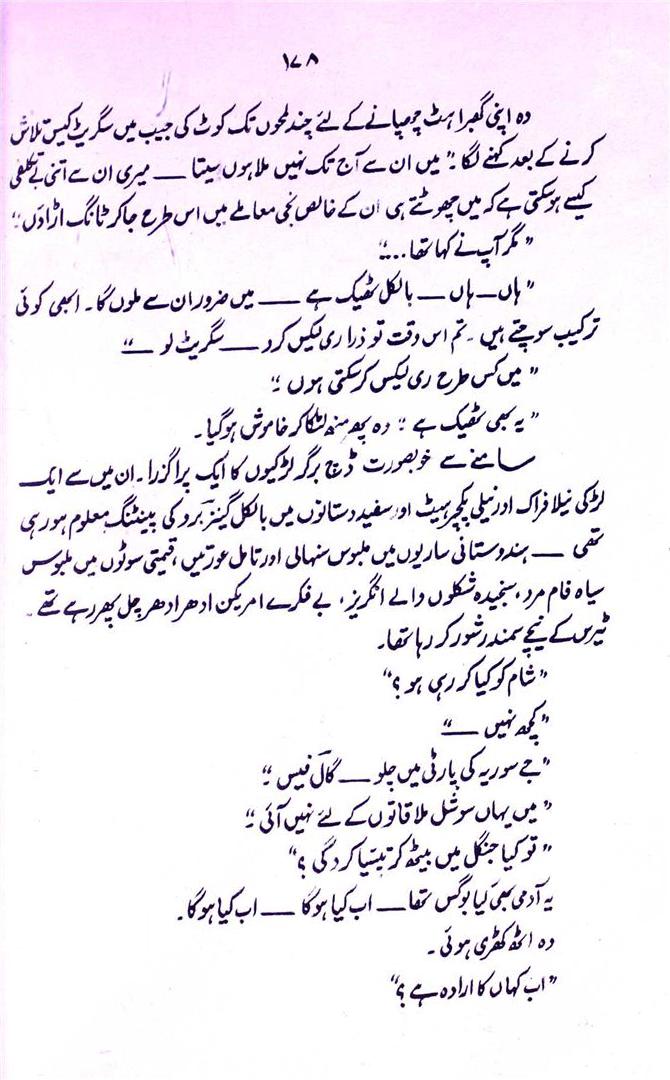 ۱۷۸
وہ اپنی گھبراہٹ چھپانے کے لئے چند لمحوں تک کوٹ کی جیب میں سگریٹ کیس تلاش
کرنے کے بعد کہنے لگا۔ "میں ان سے آج تک نہیں ملا ہوں سیتا ــــ میری ان سے اتنی بے تکلفی
کیسے ہو سکتی ہے کہ میں چھوٹتے ہی ان کے خالص نجی معاملے میں اس طرح جا کر ٹانگ اڑا دوں۔"
"مگر آپ نے کہا تھا۔۔۔"
"ہاں ــ ہاں ــــ بالکل ٹھیک ہے ــــ میں ضرور ان سے ملوں گا۔ ابھی کوئی
ترکیب سوچتے ہیں۔ تم اس وقت تو ذرا ری لیکس کرو ــــ سگریٹ لو ــــ"
"میں کس طرح ری لیکس کر سکتی ہوں۔"
"یہ بھی ٹھیک ہے۔" وہ پھر منہ لٹکا کر خاموش ہو گیا۔
سامنے سے خوبصورت ڈچ برگر لڑکیوں کا ایک پرا گزرا۔ ان میں سے ایک
لڑکی نیلا فراک اور نیلی پکچر ہیٹ اور سفید دستانوں میں بالکل گینز برو کی پینٹنگ معلوم ہو رہی
تھی ــــ ہندوستانی ساریوں میں ملبوس سنہالی اور تامل عورتیں، قیمتی سوٹوں میں ملبوس
سیاہ فام مرد، سنجیدہ شکلوں والے انگریز، بے فکرے امریکن ادھر ادھر چل پھر رہے تھے۔
ٹیرس کے نیچے سمندر شور کر رہا تھا۔
"شام کو کیا کر رہی ہو؟"
"کچھ نہیں ــــ"
"جے سوریہ کی پارٹی میں چلو ــــ گال فیس۔"
"میں یہاں سوشل ملاقاتوں کے لئے نہیں آئی۔"
"تو کیا جنگل میں بیٹھ کر تپسیا کرو گی؟"
یہ آدمی بھی کیا بوگس تھا ــــ اب کیا ہوگا ــــ اب کیا ہوگا۔
وہ اٹھ کھڑی ہوئی۔
"اب کہاں کا ارادہ ہے؟"